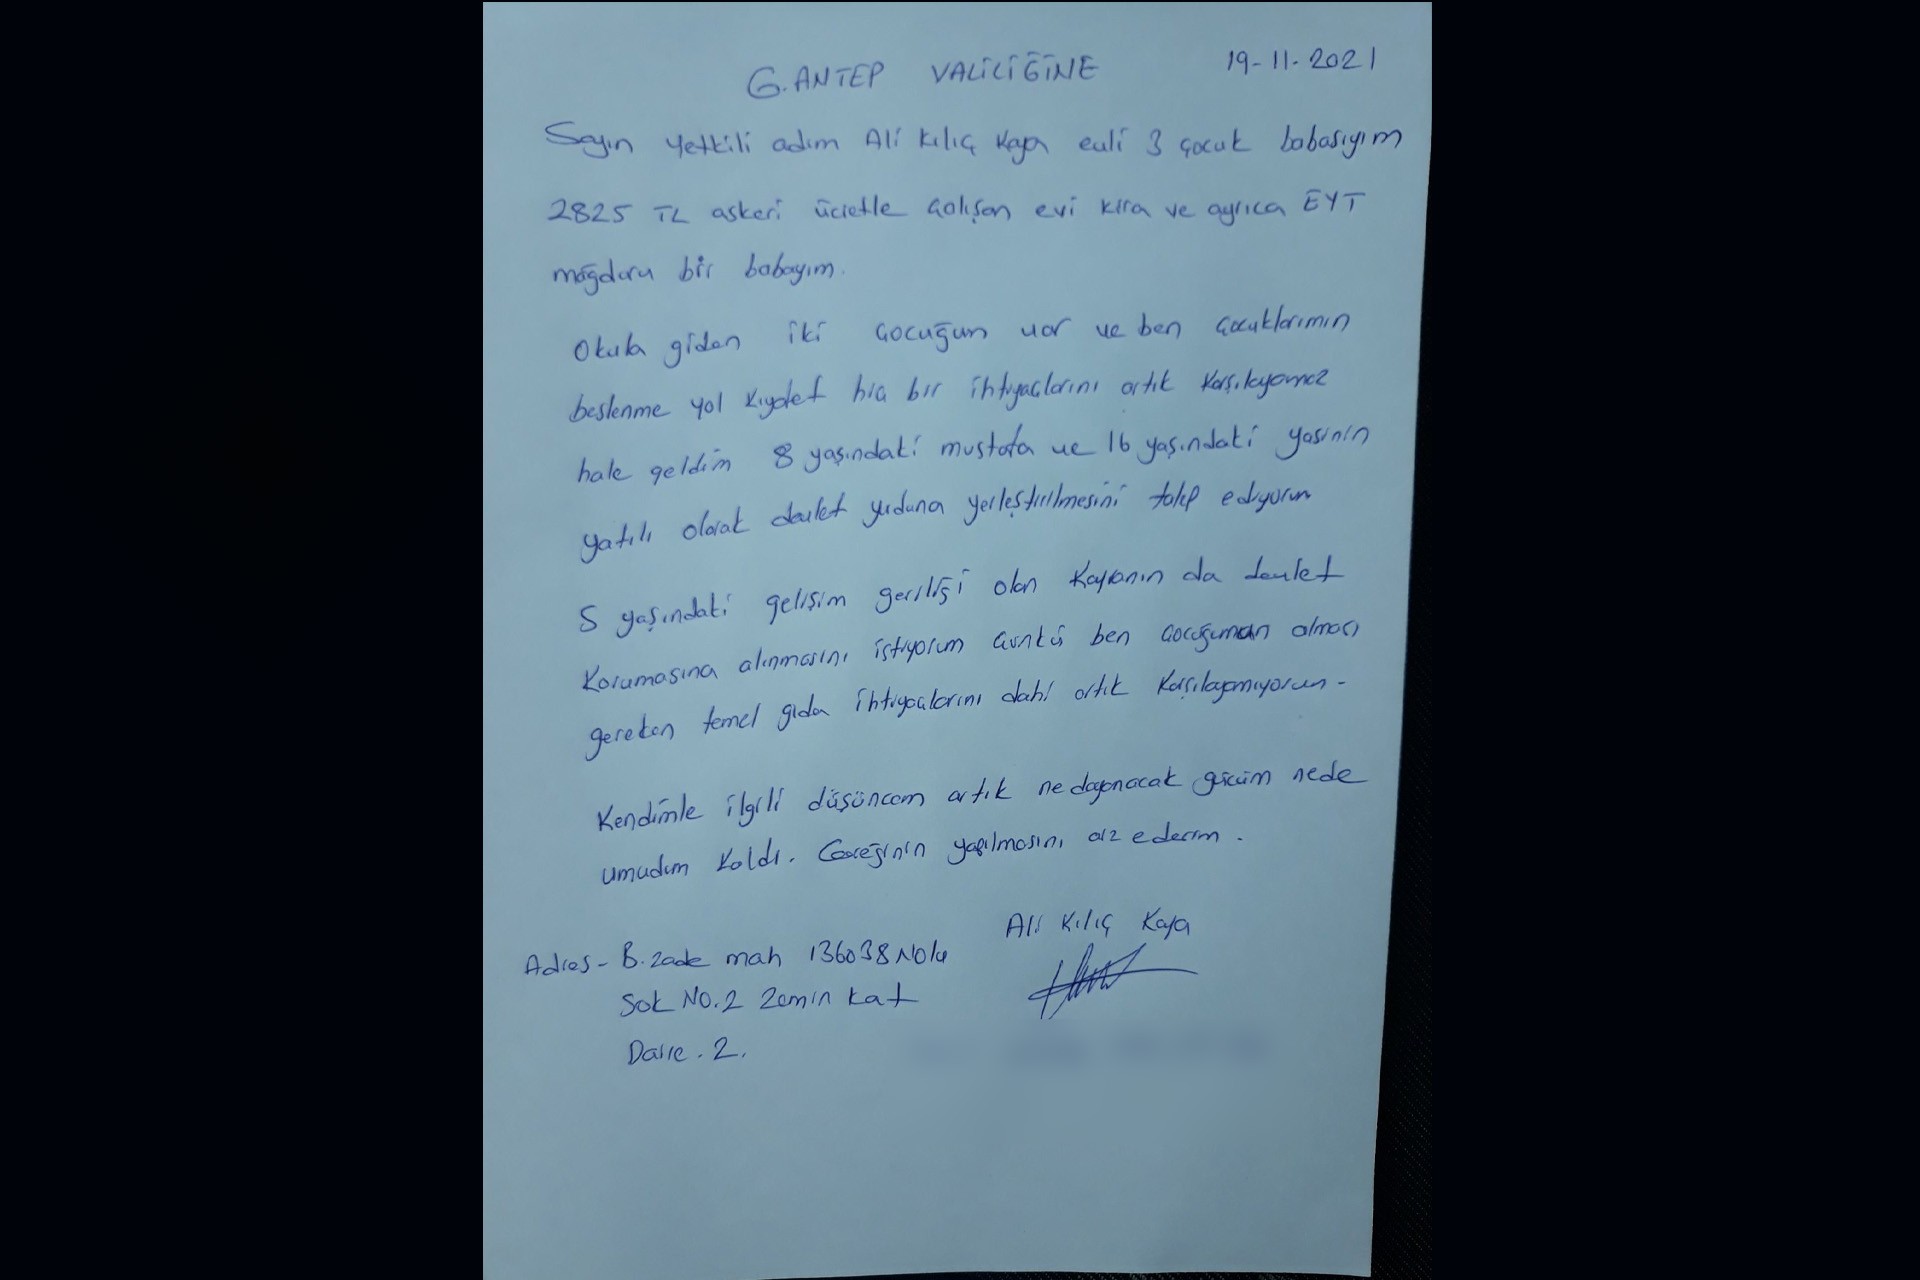 G.ANTEP VALİLİĞİNE 19-11-2021
Sayın yetkili adım Ali Kılıç Kaya evli 3 çocuk babasıyım
2825 TL askeri ücretle çalışan evi kira ve ayrıca EYT
mağduru bir babayım.
Okula giden iki çocuğum var ve ben çocuklarımın
beslenme yol kıyafet hiç bir ihtiyaçlarını artık karşılayamaz
hale geldim 8 yaşındaki mustafa ve 16 yaşındaki yasinin
yatılı olarak devlet yurduna yerleştirilmesini talep ediyorum
5 yaşındaki gelişim geriliği olan Kayranın da devlet
korumasına alınmasını istiyorum çünkü ben çocuğuman alması
gereken temel gıda ihtiyaçlarını dahi artık karşılayamıyorum-
Kendimle ilgili düşüncem artık ne dayanacak gücüm nede
umudum kaldı. Gereğinin yapılmasını arz ederim.
Ali Kılıç Kaya
Adres - B.zade mah 136038 Nolu
Sok No.2 Zemin kat
Daire.2.